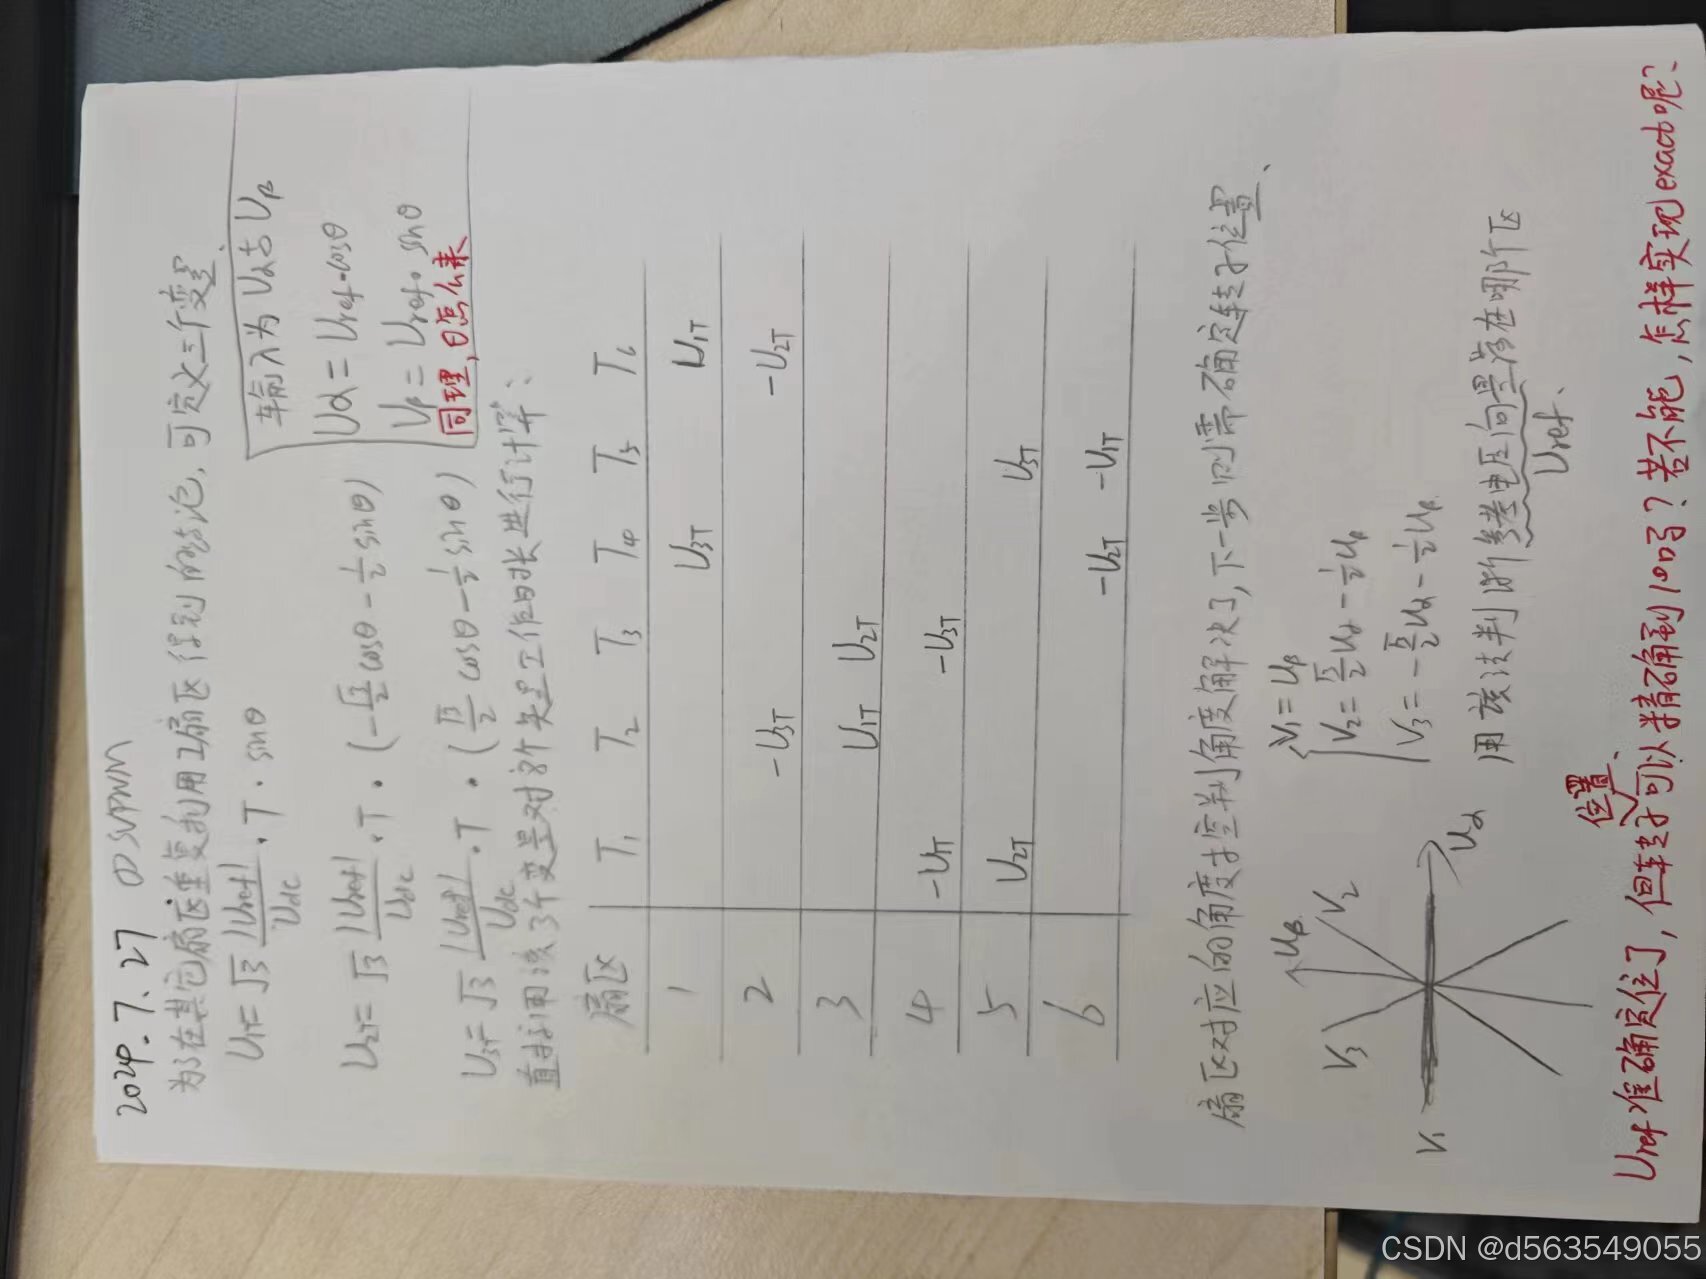 2024.7.27 ①SVPWM
为了在其它扇区重复利用I扇区得到的结论,可定义三个变量、
U1T=√3 |Uref|/Udc ·T·sinθ
U2T=√3 |Uref|/Udc ·T·(-√3/2 cosθ-1/2 sinθ)
U3T=√3 |Uref|/Udc ·T·(√3/2 cosθ-1/2 sinθ)
输入为Uα与Uβ
Uα=Uref·cosθ
Uβ=Uref·sinθ
同理,θ怎么来
直接利用该3个变量对各个矢量工作时长进行计算:
扇区 T1 T2 T3 T4 T5 T6
1 U3T U1T
2 -U3T -U2T
3 U1T U2T
4 -U1T -U3T
5 U2T U3T
6 -U2T -U1T
扇区对应的角度控制角度解决了,下一步则需确定转子位置、
Uβ
V3
V2
V1
Uα
V1=Uβ
V2=√3/2 Uα-1/2 Uβ
V3=-√3/2 Uα-1/2 Uβ
用该法判断参考电压向量落在哪个区
Uref、
位置、
Uref准确定位了,但转子可以精确到100吗?若不能,怎样实现exact呢?、
CSDN @d563549055